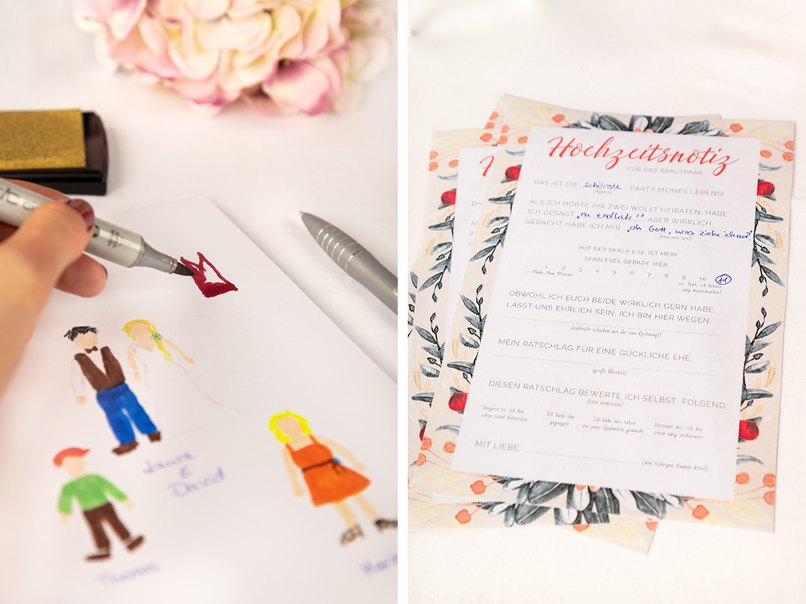 Laura
&
David
Thomas
Hochzeitsnotiz
FÜR DAS BRAUTPAAR
DAS IST DIE schönste PARTY MEINES LEBENS!
ALS ICH HÖRTE IHR ZWEI WOLLT HEIRATEN, HABE
ICH GESAGT „na endlich!" ABER WIRKLICH
GEDACHT HABE ICH MIR „oh Gott, was ziehe ich an?"
AUF DER SKALA 1-10, IST MEIN
SPASSLEVEL GERADE HIER
1 2 3 4 5 6 7 8 9 10 11
OBWOHL ICH EUCH BEIDE WIRKLICH GERN HABE,
LASST UNS EHRLICH SEIN, ICH BIN HIER WEGEN:
MEIN RATSCHLAG FÜR EINE GLÜCKLICHE EHE:
(große Weisheit)
DIESEN RATSCHLAG BEWERTE ICH SELBST FOLGEND:
(bitte einkreisen)
Vergesst es, ich bin Ich habe ihn Ich habe mir schon Vertraut mir, ich bin
schon total betrunken gegoogelt ein paar Gedanken gemacht schon ewig verheiratet
MIT LIEBE:
(den richtigen Namen bitte!)